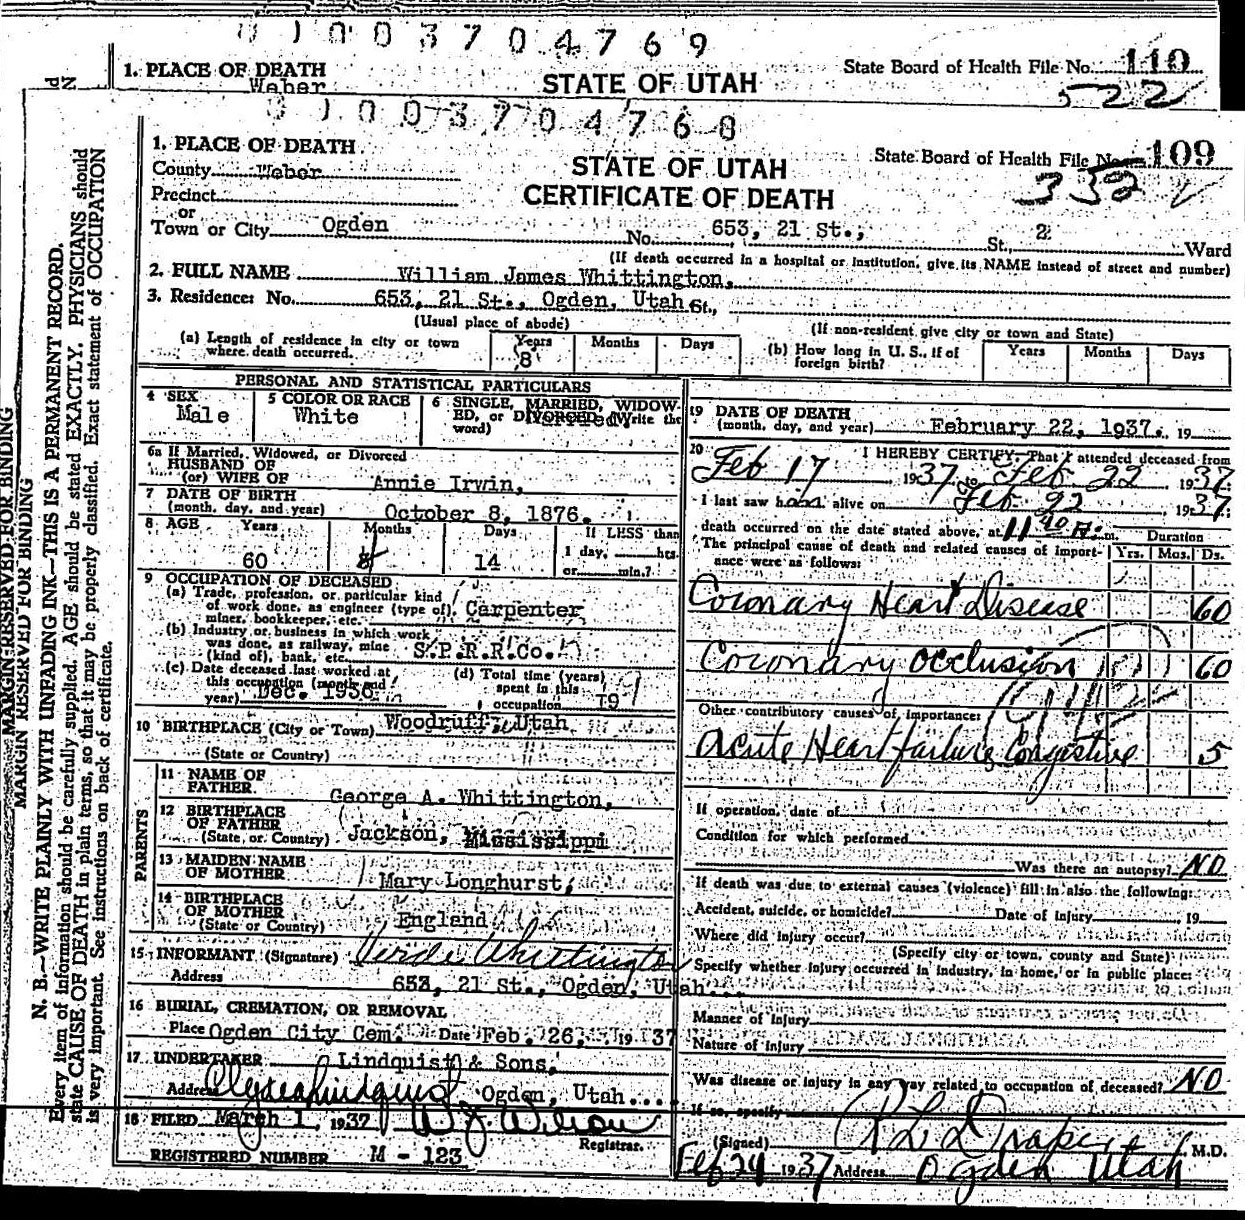 0 1 0 0 3 7 0 4 7 6 9
1. PLACE OF DEATH
Weber
STATE OF UTAH
State Board of Health File No. 110
522
0 1 0 0 3 7 0 4 7 6 8
1. PLACE OF DEATH
County Weber
STATE OF UTAH
CERTIFICATE OF DEATH
State Board of Health File No. 109
352
Precinct
or
Town or City Ogden No. 653, 21 St., St., 2 Ward
(If death occurred in a hospital or institution, give its NAME instead of street and number)
2. FULL NAME William James Whittington,
3. Residence: No. 653, 21 St., Ogden, Utah St.,
(Usual place of abode) (If non-resident give city or town and State)
(a) Length of residence in city or town where death occurred. Years 8 Months Days
(b) How long in U. S., if of foreign birth? Years Months Days
PERSONAL AND STATISTICAL PARTICULARS
4 SEX Male
5 COLOR OR RACE White
6 SINGLE, MARRIED, WIDOW-
ED, or DIVORCED (Write the
word) Married
6a If Married, Widowed, or Divorced
HUSBAND OF
(or) WIFE OF Annie Irwin,
7 DATE OF BIRTH
(month, day, and year) October 8, 1876.
8 AGE Years 60 Months Days 14 If LESS than
1 day, hrs.
or min.?
9 OCCUPATION OF DECEASED
(a) Trade, profession, or particular kind
of work done, as engineer (type of), Carpenter
miner, bookkeeper, etc.
(b) Industry or business in which work
was done, as railway, mine S.P.R.R.Co.
(kind of), bank, etc.
(c) Date deceased last worked at
this occupation (month and
year) Dec. 1936
(d) Total time (years)
spent in this
occupation 19
10 BIRTHPLACE (City or Town) Woodruff, Utah
(State or Country)
PARENTS
11 NAME OF
FATHER George A. Whittington,
12 BIRTHPLACE
OF FATHER
(State or Country) Jackson, Mississippi
13 MAIDEN NAME
OF MOTHER Mary Longhurst,
14 BIRTHPLACE
OF MOTHER
(State or Country) England
15 INFORMANT (Signature) Whittington
Address 653, 21 St., Ogden, Utah...
16 BURIAL, CREMATION, OR REMOVAL
Place Ogden City Cem. Date Feb. 26, 1937
17 UNDERTAKER Lindquist & Sons,
Address Ogden, Utah...
18 FILED March 1, 1937 Wilson
Registrar.
REGISTERED NUMBER M - 123
19 DATE OF DEATH
(month, day, and year) February 22, 1937. , 19
20 I HEREBY CERTIFY, That I attended deceased from
Feb 17 , 1937 to Feb 22 1937
I last saw h alive on Feb 22 , 1937
death occurred on the date stated above, at 11 40 A. m. Duration
The principal cause of death and related causes of import-
ance were as follows: Yrs. Mos. Ds.
Coronary Heart Disease 60
Coronary occlusion 60
Other contributory causes of importance:
Acute Heart failure Congestive 5
If operation, date of
Condition for which performed
Was there an autopsy? NO
If death was due to external causes (violence) fill in also the following:
Accident, suicide, or homicide? Date of injury , 19
Where did injury occur?
(Specify city or town, county and State)
Specify whether injury occurred in industry, in home, or in public place:
Manner of Injury
Nature of Injury
Was disease or injury in any way related to occupation of deceased? NO
If so, specify
(Signed) R L Draper M.D.
Feb 24 1937 Address Ogden Utah
MARGIN RESERVED FOR BINDING
MARGIN RESERVED FOR BINDING
N. B.—WRITE PLAINLY WITH UNFADING INK—THIS IS A PERMANENT RECORD.
Every item of information should be carefully supplied. AGE should be stated EXACTLY. PHYSICIANS should
state CAUSE OF DEATH in plain terms, so that it may be properly classified. Exact statement of OCCUPATION
is very important. See instructions on back of certificate.